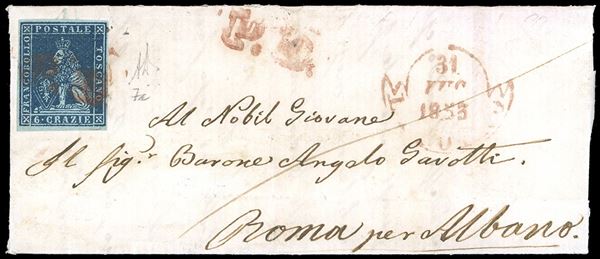 FRANCOBOLLO POSTALE TOSCANO
6 • CRAZIE
7a
31
LUG
1853
Al Nobil Giovane
Il Sig.r Barone Angelo Gavotti.
Roma per Albano.